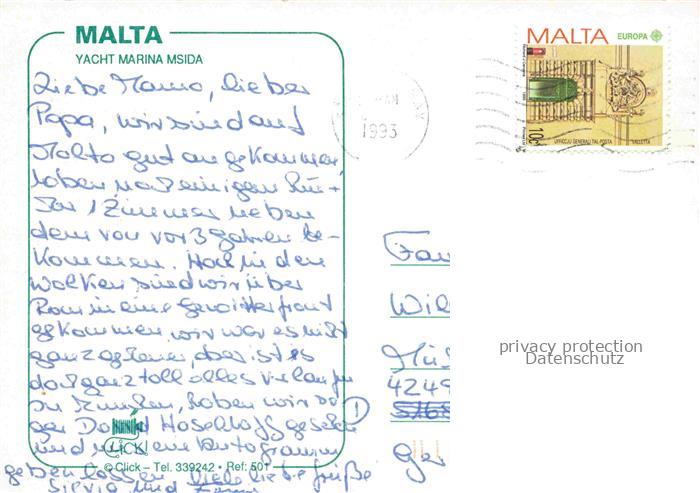 MALTA
YACHT MARINA MSIDA
Liebe Mama, lieber
Papa, wir sind auf
Malta gut angekommen,
haben nach einigem
1 Zimmer neben
dem von vor 3 Jahren be-
kommen. Hoch in den
Wolken sind wir über
Rom in eine Gewitterfront
gekommen, wir war es nicht
ganz geheuer, aber ist es
doch ganz toll alles verlaufen
In München, haben wir so
gar David Hasselhoff gesehen
und uns ein Autogramm
geben lassen. Viele liebe Grüße
Silvia und
CLICK
© Click – Tel. 339242 • Ref: 501
1993
MALTA
EUROPA
10c
UFFIĊĊJU ĠENERALI TAL-POSTA
VALLETTA
Fam
Wil
4249
privacy protection
Datenschutz